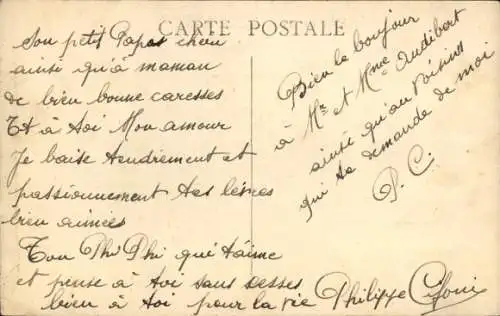 CARTE POSTALE
son petit Papa cheri
ainsi qu'à maman
de bien bonne caresses
Et à toi Mon amour
Je baise tendrement et
passionnement tes lèvres
bien aimées
Ton Phi Phi qui t'aime
et pense à toi sans cesses
bien à toi pour la vie Philippe
Bien le bonjour
à Mr et Mme Audibert
ainsi qu'au voisins
qui te demande de moi
P. C.